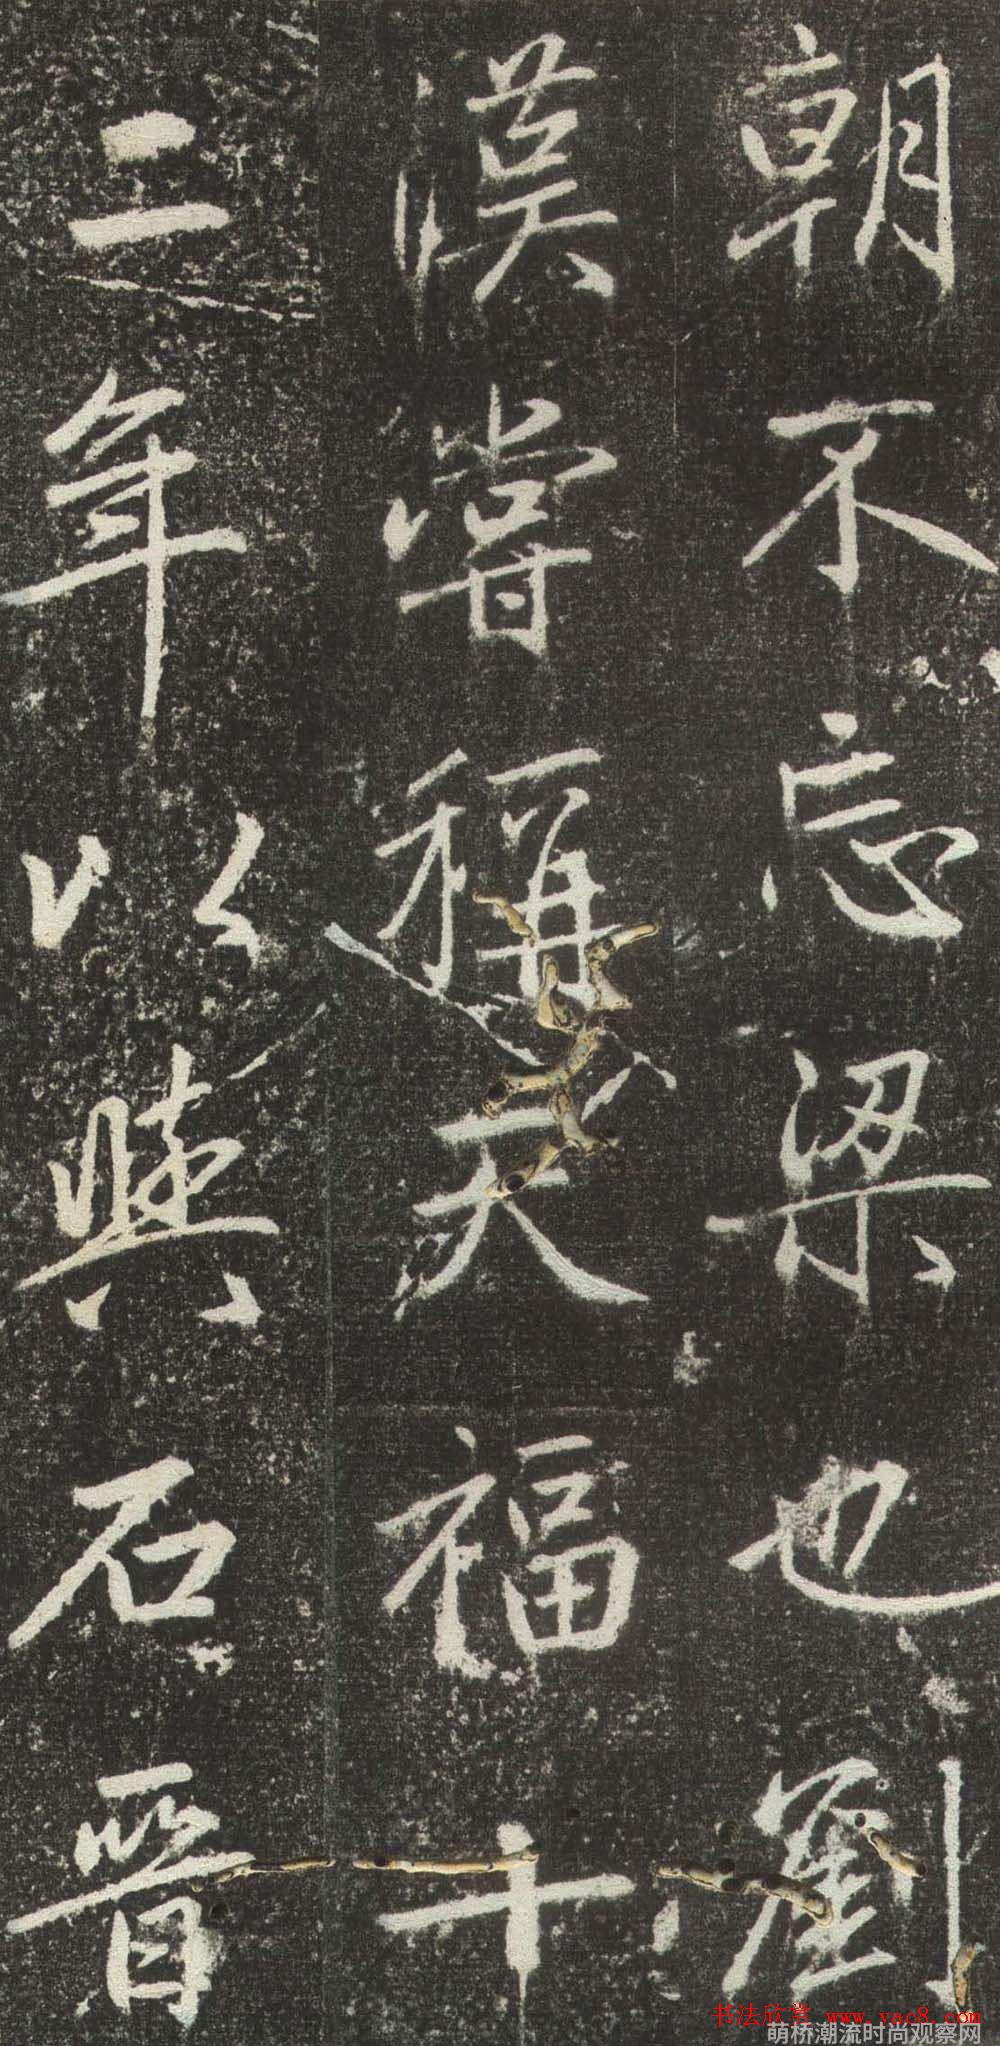 朝不忘梁也劉
漢嘗稱天福十
二年以與石晉
书法欣赏 www.yac8.com
萌桥潮流时尚观察网